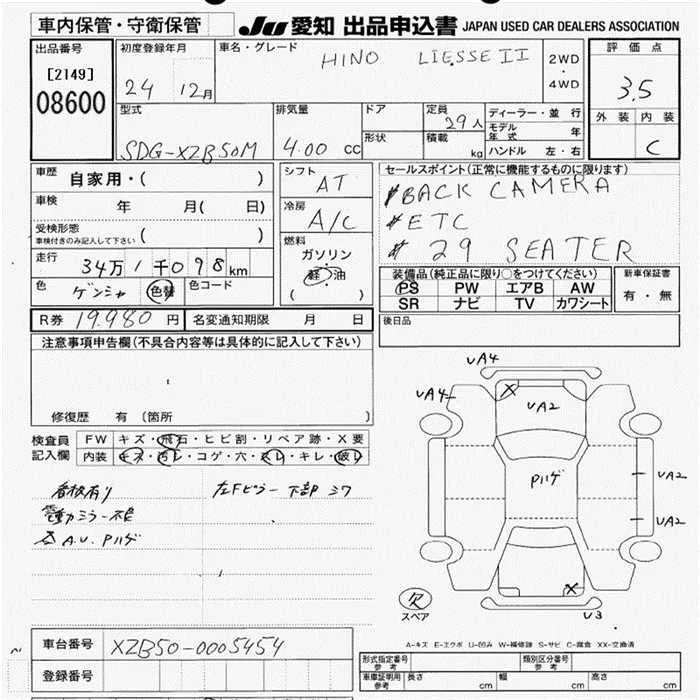 車内保管・守衛保管 JU 愛知 出品申込書 JAPAN USED CAR DEALERS ASSOCIATION
出品番号 初度登録年月 車名・グレード 評価点
[2149] 24 12月 HINO LIESSE II 2WD・4WD 3.5
08600 外装 内装
型式 排気量 ドア 定員 29人 ディーラー・並行
モデル年式 年
SDG-XZB50M 4.00 cc 形状 積載 kg ハンドル 左・右 C
車歴 自家用・( ) シフト AT セールスポイント(正常に機能するものに限ります)
車検 年 月( 日) 冷房 A/C #BACK CAMERA
受検形態 ( ) #ETC
車検付きのみ記入して下さい
走行 34万1千098km 燃料 ガソリン・軽油 ( ) # 29 SEATER
色 ゲンシャ 色替 色コード 装備品(純正品に限り○をつけてください) 新車保証書
PS PW エアB AW 有・無
SR ナビ TV カワシート
R券 19,980円 名変通知期限 月 日 後日品
注意事項申告欄(不具合内容等は具体的に記入して下さい)
修復歴 有 (箇所
検査員 FW キズ・飛石・ヒビ割・リペア跡・X要
記入欄 内装 キズ・汚レ・コゲ・穴・スレ・キレ・破レ
UA4
UA4
UA2
Pハゲ
UA2
UA2
看板有り 左Fピラー下部 ミワ
電動ミラー不良
A.U. Pハゲ
欠
スペア U3
A-キズ E-エクボ U-凹み W-補修跡 S-サビ C-腐食 XX-交換済
車台番号 XZB50-0005454
登録番号
形式指定番号 参考 類別区分番号 参考
車庫証明用 参考 長さ cm 幅 cm 高さ cm